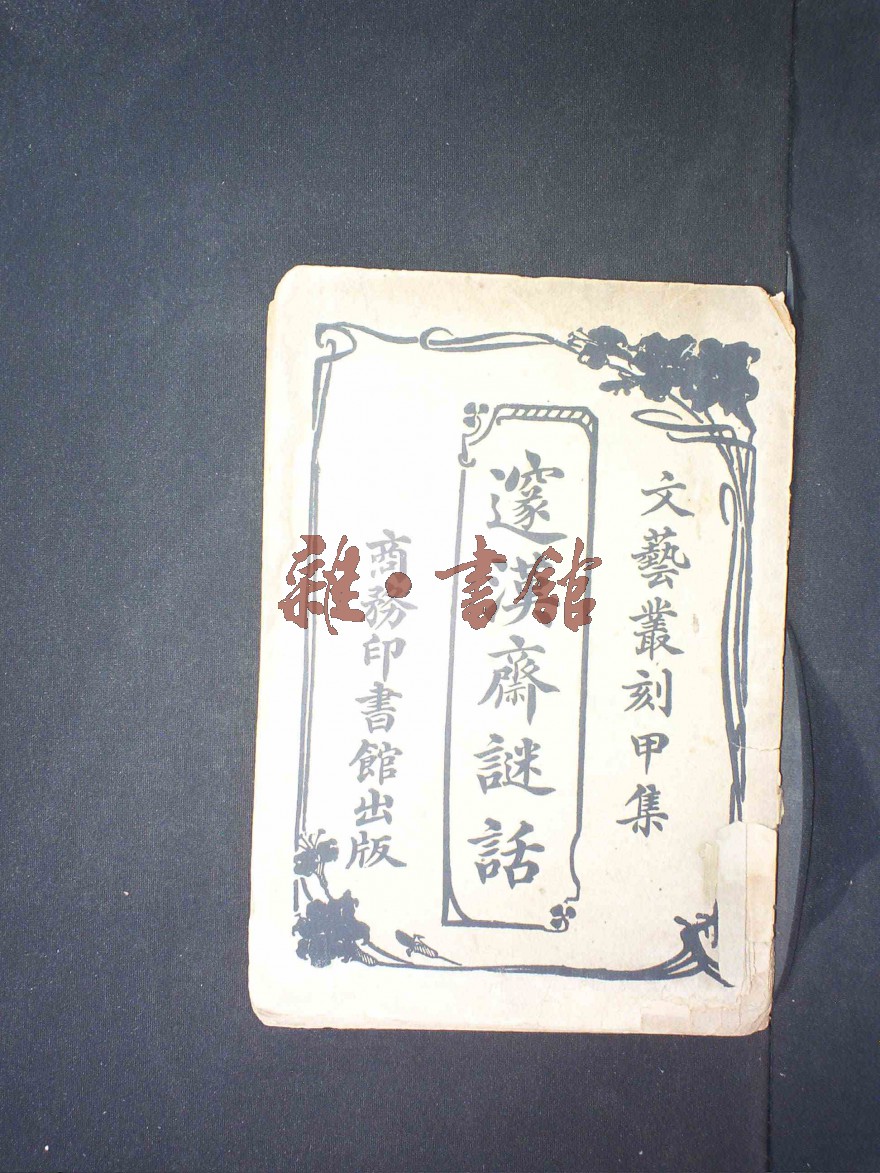 文藝叢刻甲集
邃漢齋謎話
商務印書館出版
雜·書館